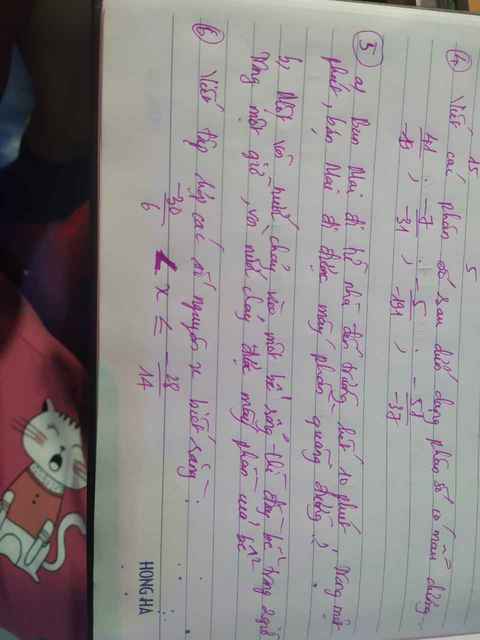 15 5
④ Viết các phân số sau dưới dạng phân số có mẫu dương.
41/-19 , -7/-31 , -5/-191 , -51/-37
⑤ a) Bạn Mai đi từ nhà đến trường hết 10 phút, trong một
phút, bạn Mai đi được mấy phần quãng đường?
b, Một vòi nước chảy vào một bể thì đầy bể trong 2 giờ
trong một giờ, vòi nước chảy được mấy phần của bể?
⑥ Viết tập hợp các số nguyên x biết rằng:
-30/6 < x ≤ -28/14
HONG HA